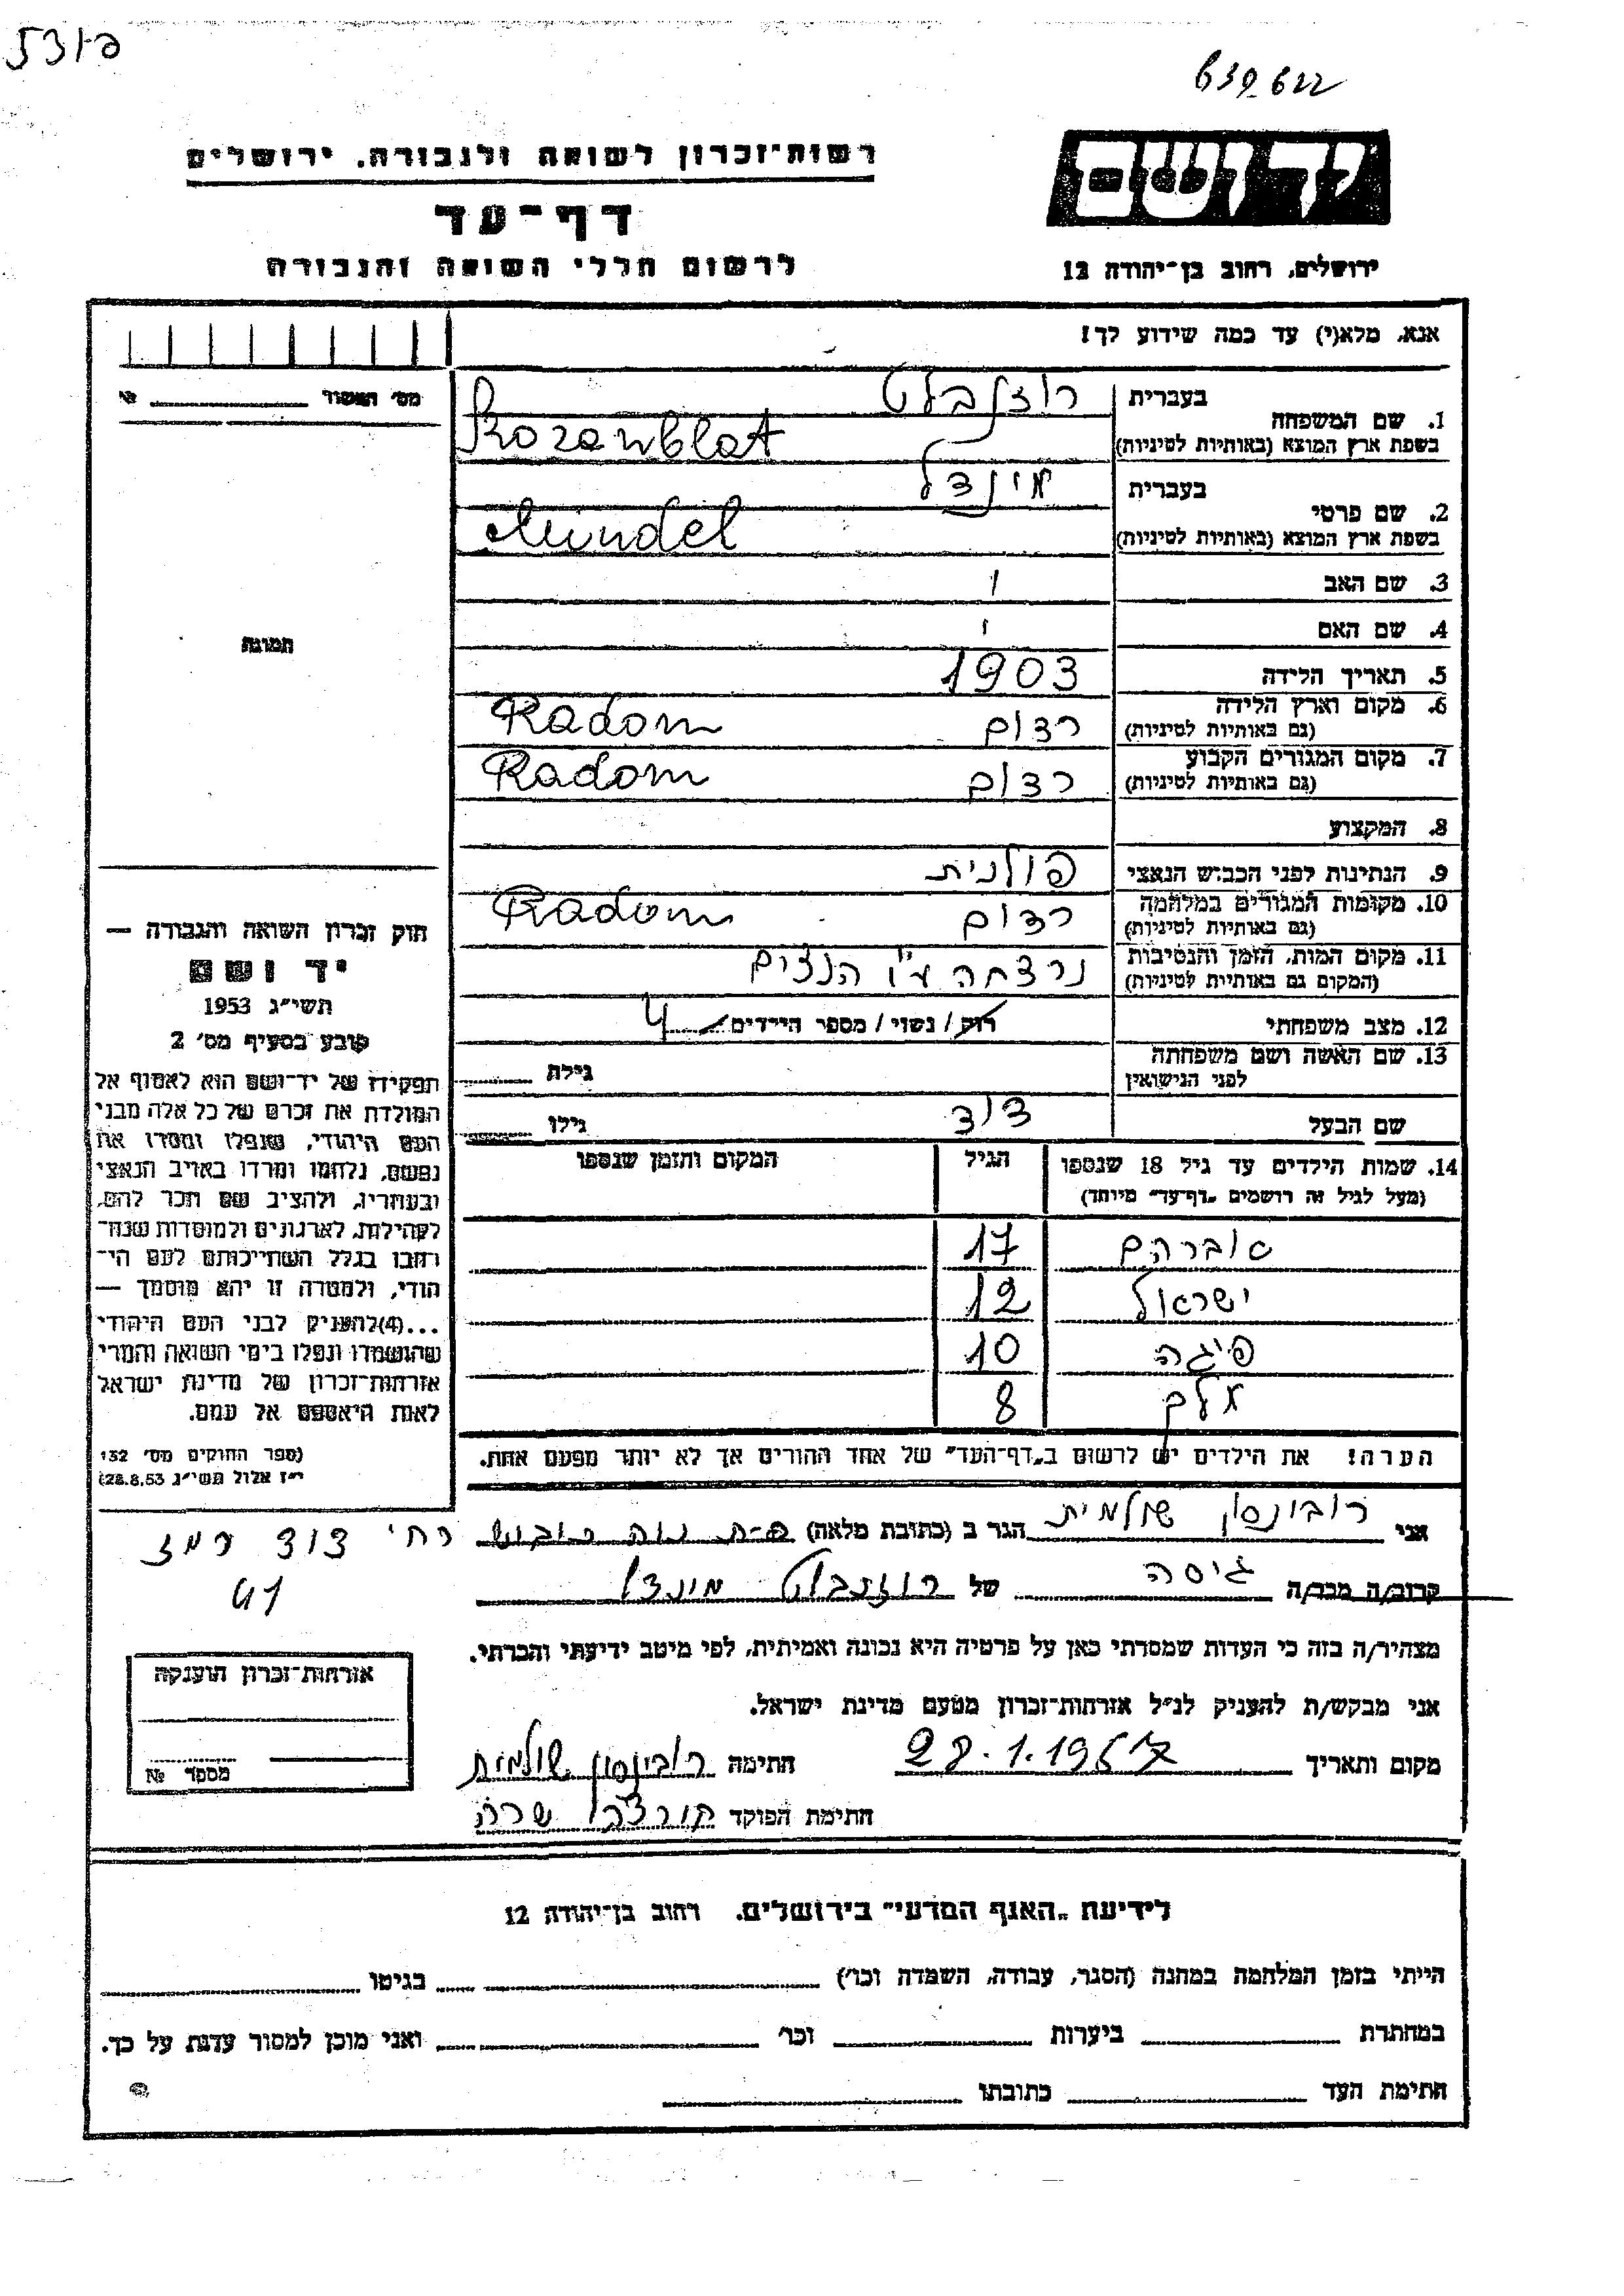 639622
רשות־זכרון לשואה ולגבורה. ירושלים
יד ושם
דף־עד
לרשום חללי השואה והגבורה
ירושלים, רחוב בן־יהודה 12
אנא, מלא(י) עד כמה שידוע לך!
מס' האשור №
1. שם המשפחה
בעברית רוזנבלט
בשפת ארץ המוצא (באותיות לטיניות) Rozenblat
2. שם פרטי
בעברית מינדל
בשפת ארץ המוצא (באותיות לטיניות) Mindel
3. שם האב
4. שם האם
תמונה
5. תאריך הלידה 1903
6. מקום וארץ הלידה
(גם באותיות לטיניות) רדום Radom
7. מקום המגורים הקבוע
(גם באותיות לטיניות) רדום Radom
8. המקצוע
9. הנתינות לפני הכבוש הנאצי פולנית
10. מקומות המגורים במלחמה
(גם באותיות לטיניות) רדום Radom
11. מקום המות, הזמן והנסיבות
(המקום גם באותיות לטיניות) נרצחה ע"י הנצים
12. מצב משפחתי רוק/ נשוי/ מספר הילדים 4
13. שם האשה ושם משפחתה
לפני הנישואין גילה
שם הבעל דוד גילו
14. שמות הילדים עד גיל 18 שנספו הגיל המקום והזמן שנספו
(מעל לגיל זה רושמים "דף־עד" מיוחד)
אברהם 17
ישראל 12
פיגה 10
8
הערה! את הילדים יש לרשום ב"דף־העד" של אחד ההורים אך לא יותר מפעם אחת.
חוק זכרון השואה והגבורה —
יד ושם
תשי"ג 1953
קובע בסעיף מס' 2
תפקידו של יד־ושם הוא לאסוף אל
המולדת את זכרם של כל אלה מבני
העם היהודי, שנפלו ומסרו את
נפשם, נלחמו ומרדו באויב הנאצי
ובעוזריו, ולהציב שם וזכר להם,
לקהילות, לארגונים ולמוסדות שנח־
רבו בגלל השתייכותם לעם הי־
הודי, ולמטרה זו יהא מוסמך —
...(4)להעניק לבני העם היהודי
שהושמדו ונפלו בימי השואה והמרי
אזרחות־זכרון של מדינת ישראל
לאות היאספם אל עמם.
(ספר החוקים מס' 132
י"ז אלול תשי"ג 28.8.53)
אני רובינסון שולמית הגר ב (כתובת מלאה) פ-ת נוה רח' דוד רמז
41
קרוב/ה מכר/ה גיסה של רוזנבלט מינדל
מצהיר/ה בזה כי העדות שמסרתי כאן על פרטיה היא נכונה ואמיתית, לפי מיטב ידיעתי והכרתי.
אני מבקש/ת להעניק לנ"ל אזרחות־זכרון מטעם מדינת ישראל.
מקום ותאריך 28.1.1957 חתימה רובינסון שולמית
חתימת הפוקד שרה
אזרחות־זכרון הוענקה
מספר №
לידיעת "האגף המדעי" בירושלים. רחוב בן־יהודה 12
הייתי בזמן המלחמה במחנה (הסגר, עבודה, השמדה וכו') בגיטו
במחתרת ביערות וכו' ואני מוכן למסור עדות על כך.
חתימת העד כתובתו